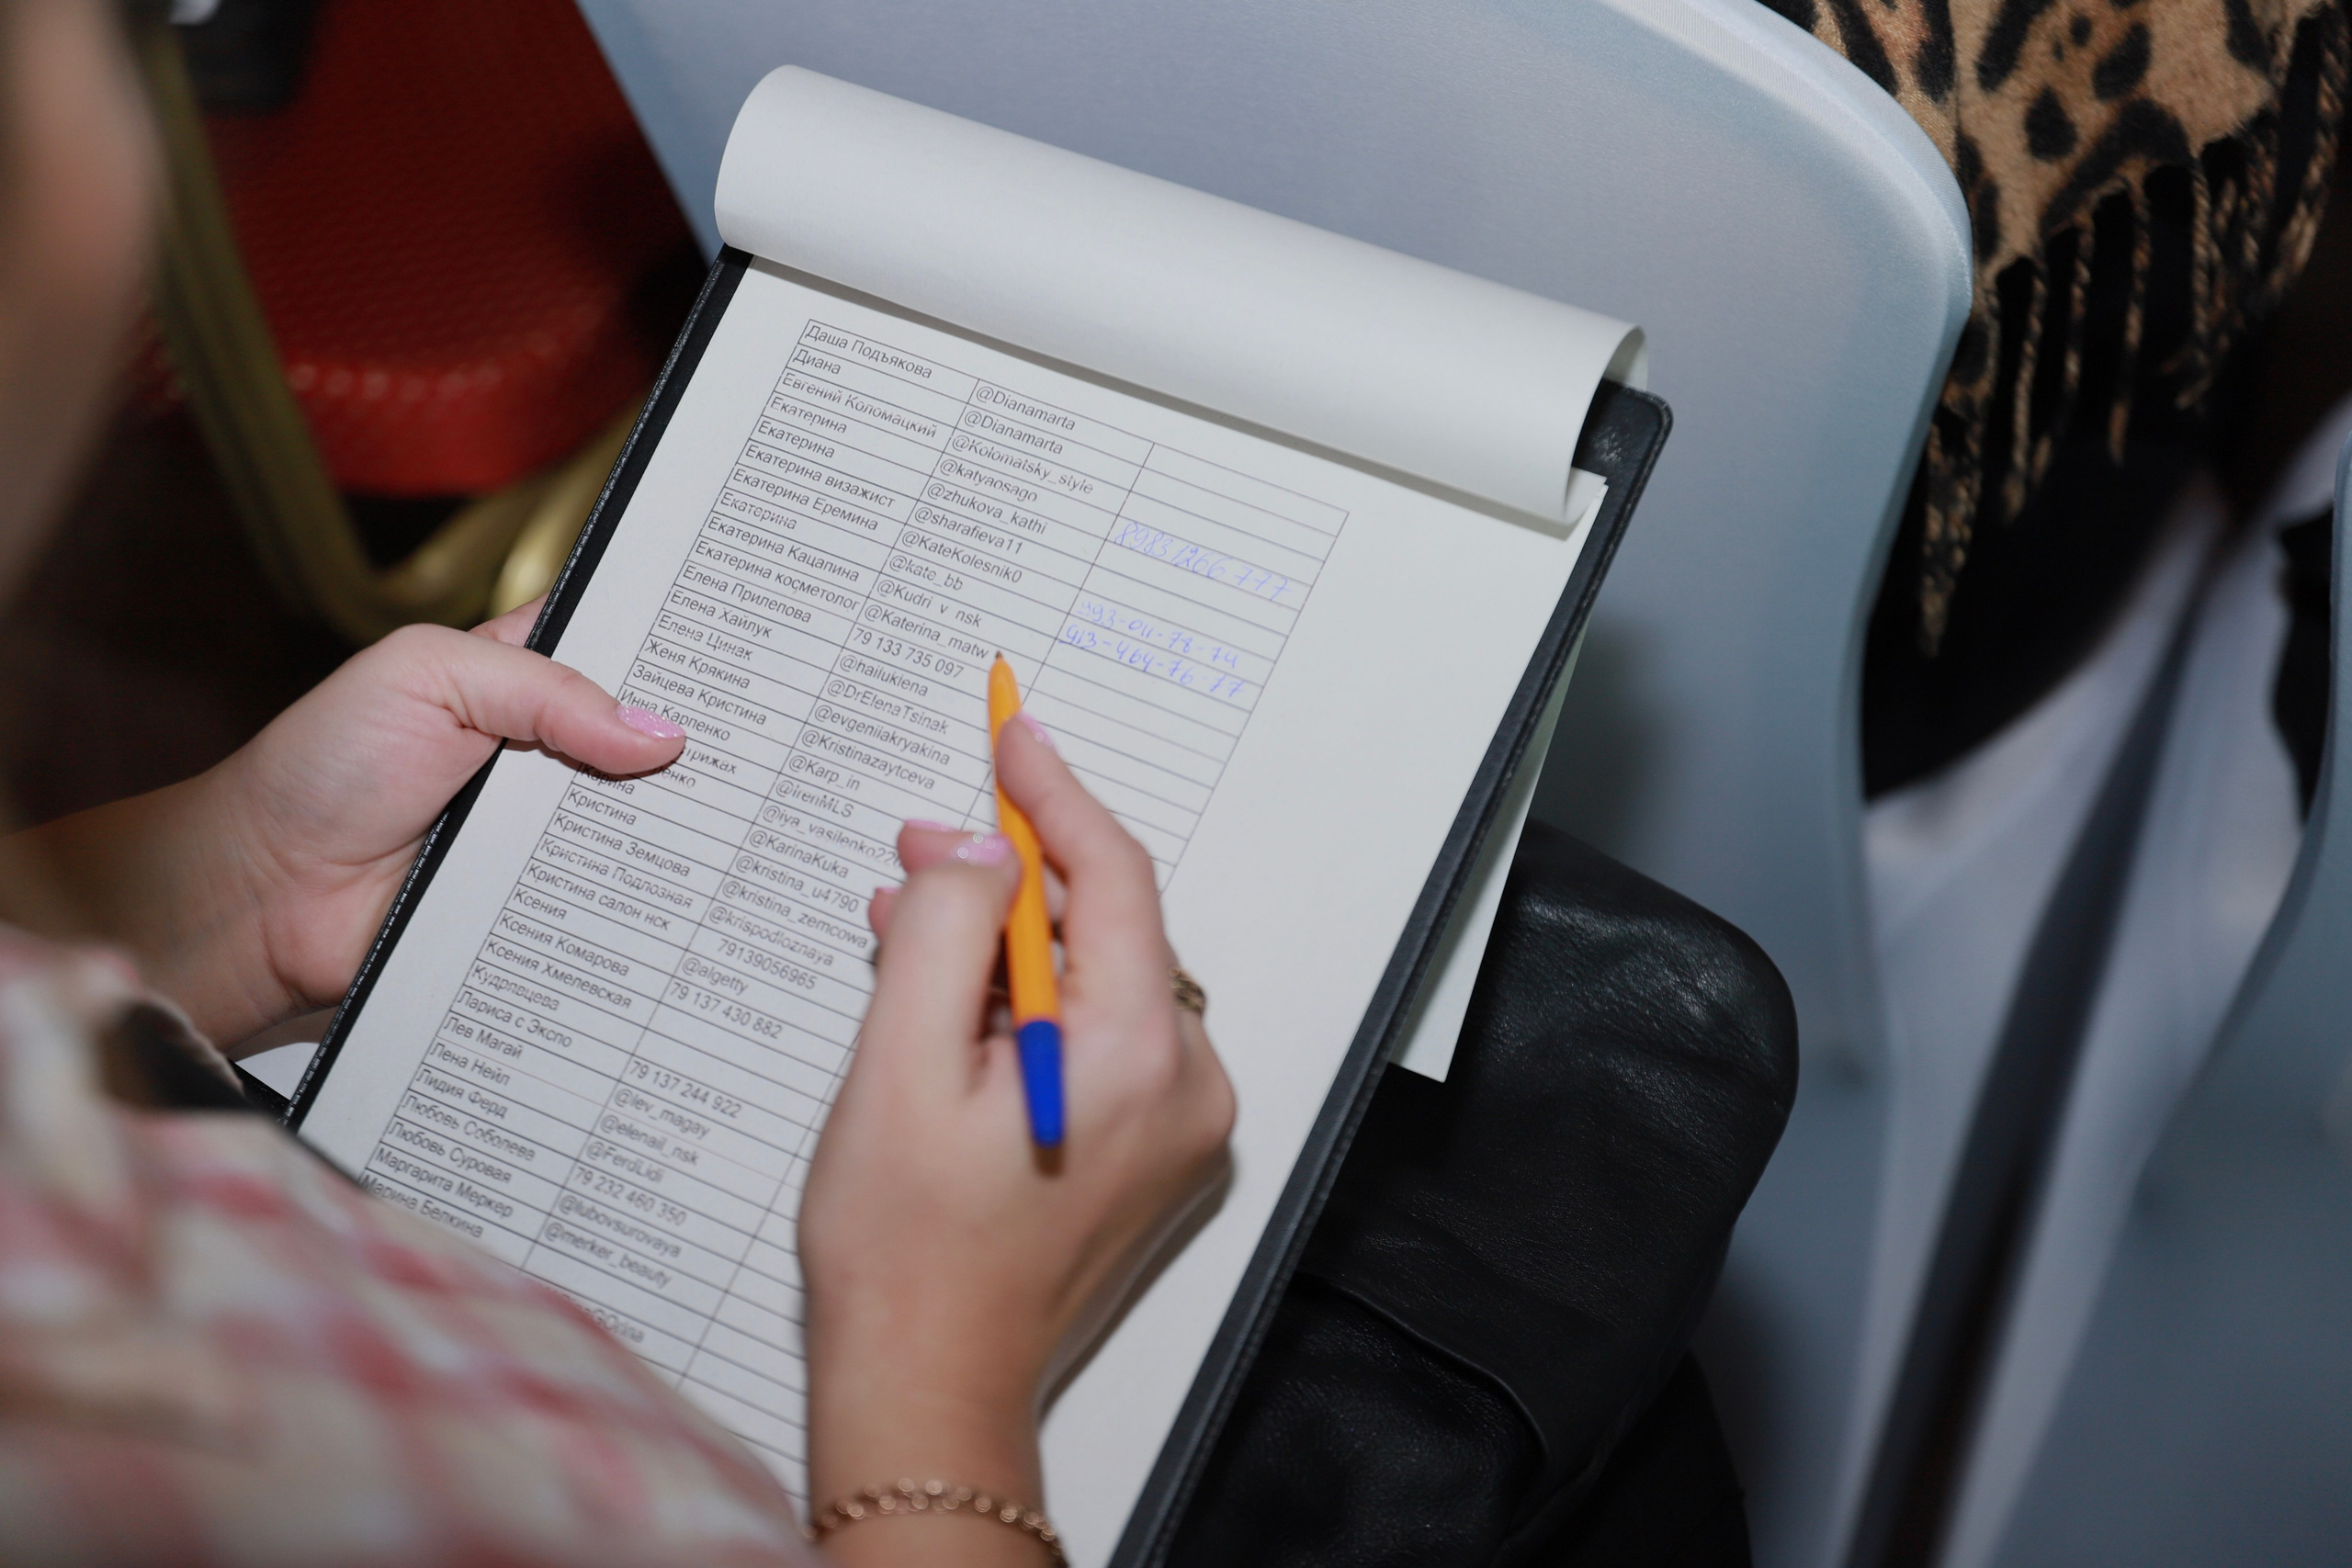 Даша Подъякова @Dianamarta
Диана @Dianamarta
Евгений Коломацкий @Kolomatsky_style
Екатерина @katyaosago
Екатерина @zhukova_kathi 89831266777
Екатерина визажист @sharafieva11
Екатерина Еремина @KateKolesnik0
Екатерина @kate_bb
Екатерина Кацапина @Kudri_v_nsk 913-464-76-77
Екатерина косметолог @Katerina_matw
Елена Прилепова 79 133 735 097
Елена Хайлук @hailuklena
Елена Цинак @DrElenaTsinak
Женя Крякина @evgeniiakryakina
Зайцева Кристина @Kristinazaytceva
Инна Карпенко @Karp_in
@irenMLS
@iya_vasilenko22
Карина @KarinaKuka
Кристина @kristina_u4790
Кристина Земцова @kristina_zemcowa
Кристина Подлозная @krispodloznaya
Кристина салон нск 79139056965
Ксения @algetty
Ксения Комарова 79 137 430 882
Ксения Хмелевская
Кудрявцева
Лариса с Экспо 79 137 244 922
Лев Магай @lev_magay
Лена Нейл @elenail_nsk
Лидия Ферд @FerdLidi
Любовь Соболева 79 232 460 350
Любовь Суровая @lubovsurovaya
Маргарита Меркер @merker_beauty
Марина Белкина